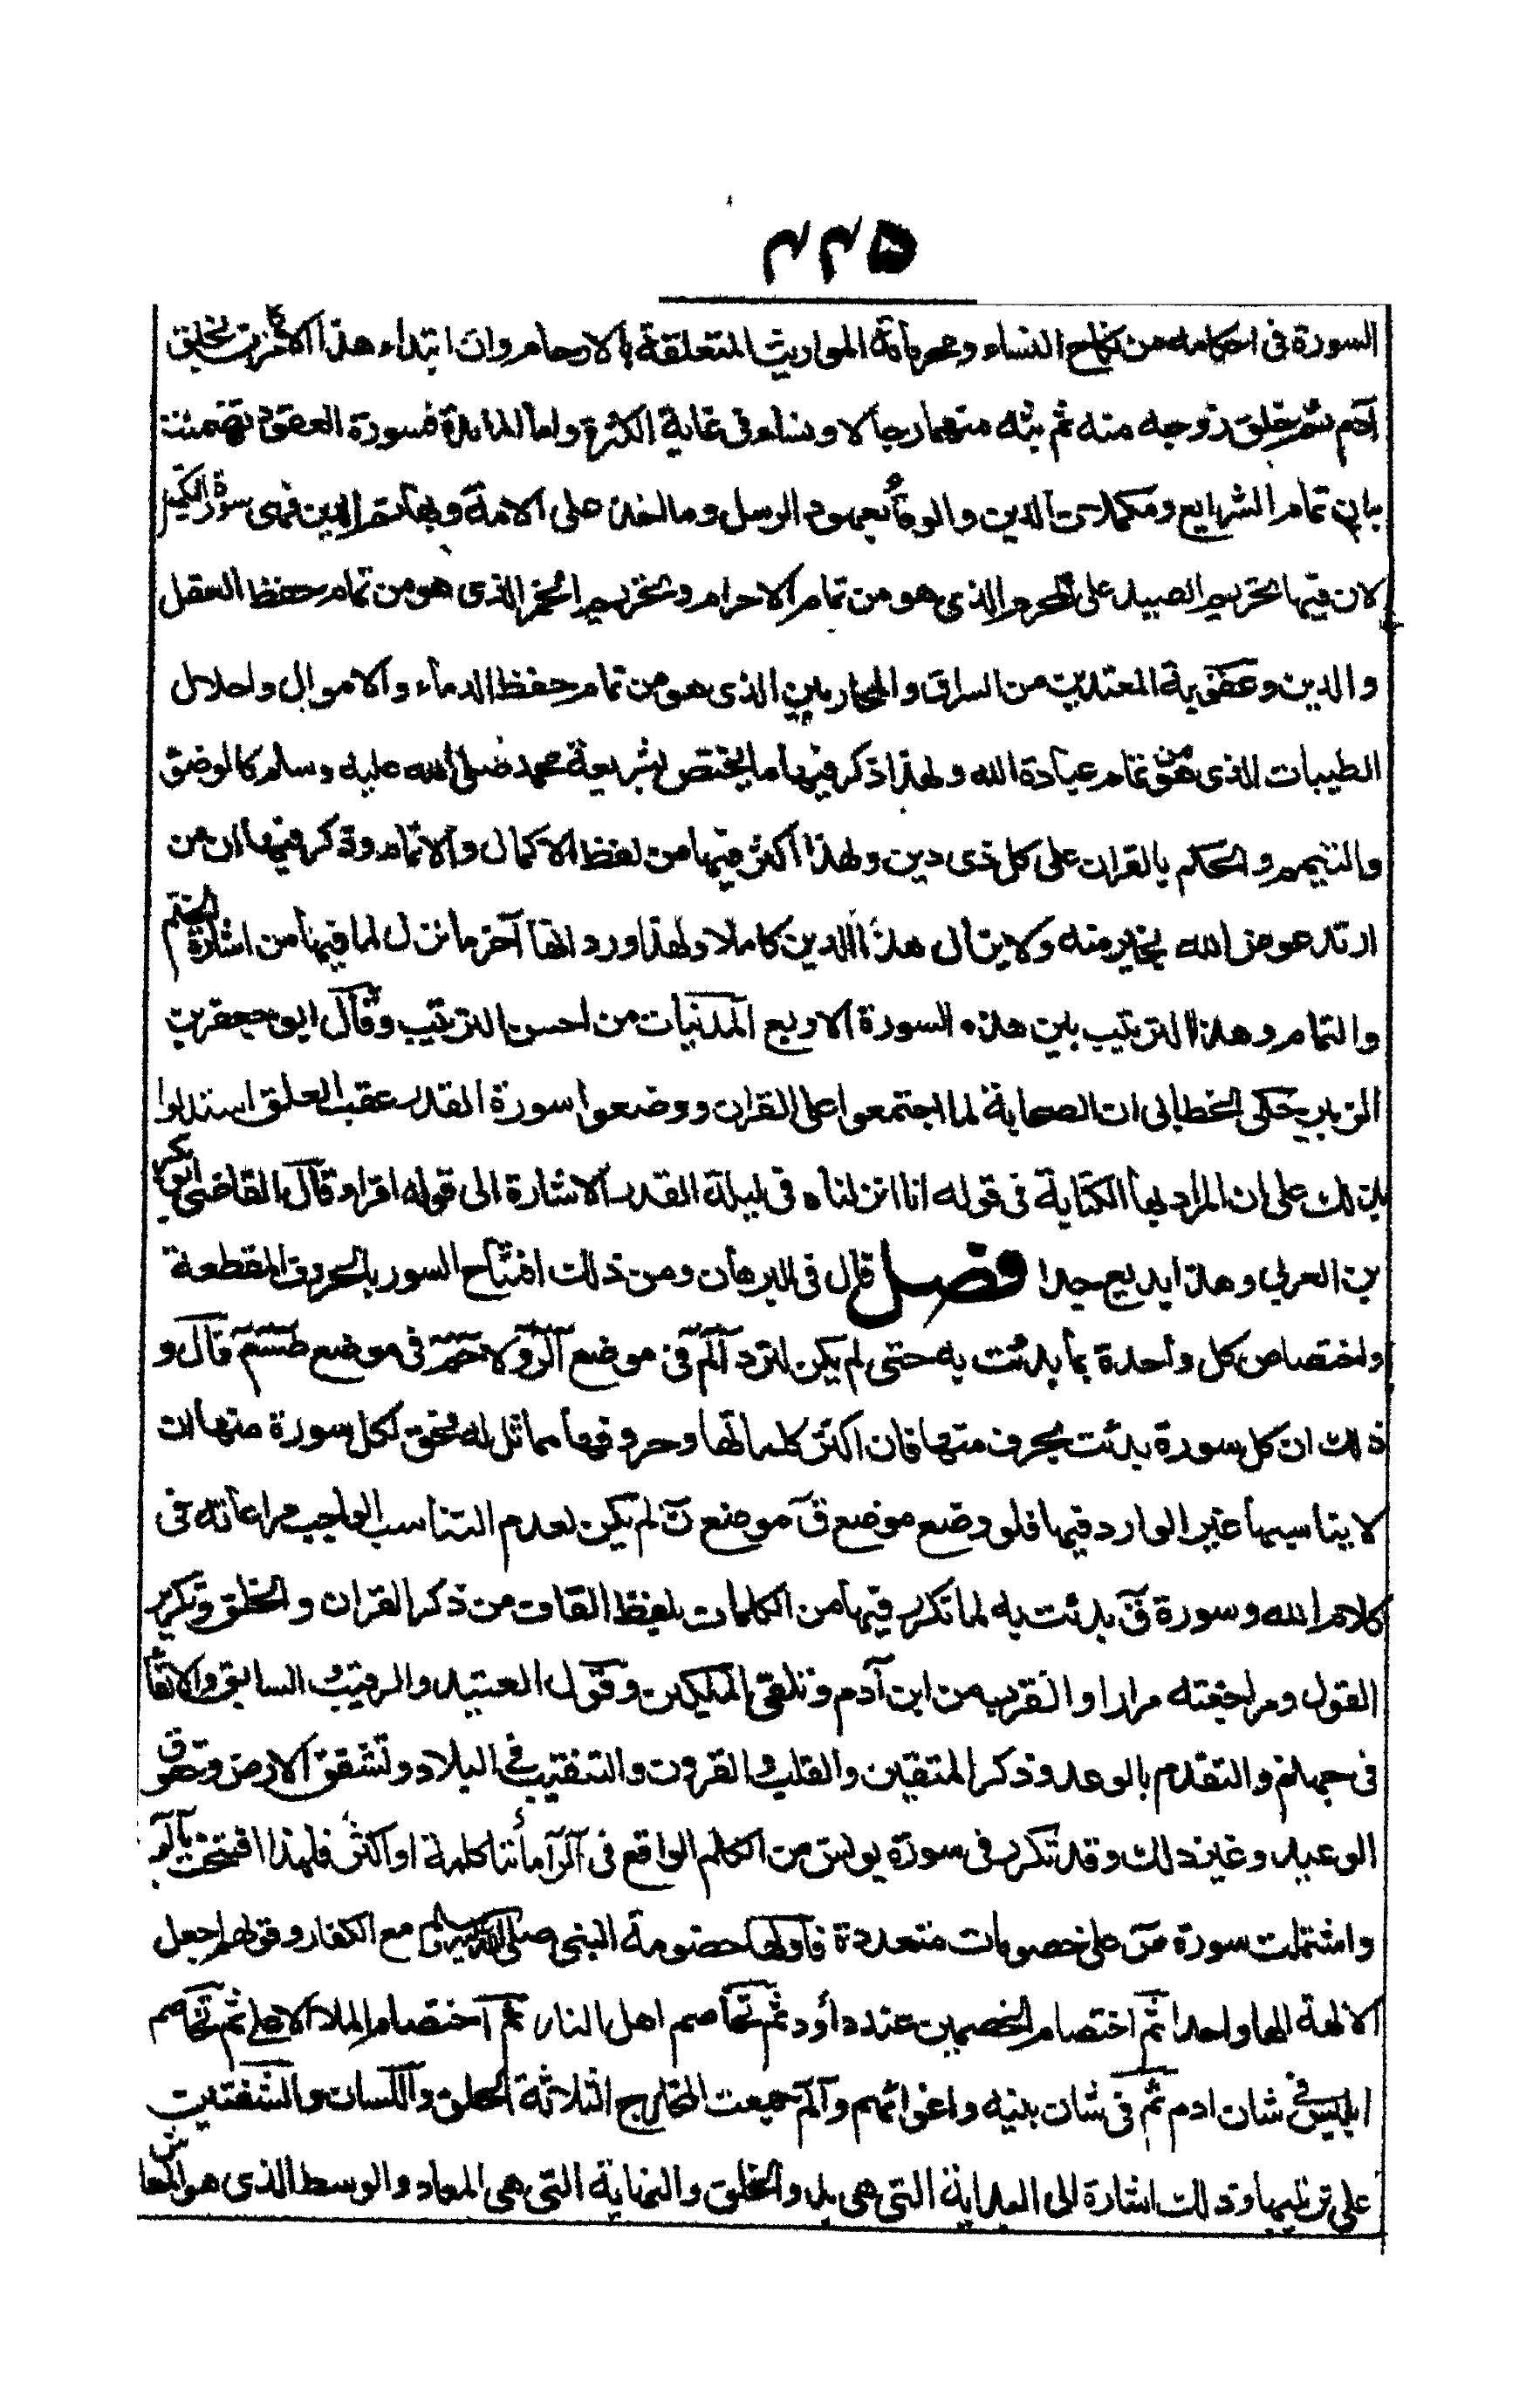 ٢٢٥
السورة فى احكامه من نكاح النساء ومحرماته المواريث المتعلقة بالارحام وان ابتداء هذا الامر كان بخلق
آدم ثم خلق زوجه منه ثم بث منهما رجالا ونساء فى غاية الكثرة واما المائدة فسورة العقود تضمنت
بيان تمام الشرايع ومكملات الدين والوفاء بعهود الرسل وما اخذ على الامة وبها تم الدين فهى سورة التكميل
لان فيها تحريم الصيد على المحرم الذى هو من تمام الاحرام وتحريم الخمر الذى هو من تمام حفظ العقل
والدين وعقوبة المعتدين من السراق والمحاربين الذى هو من تمام حفظ الدماء والاموال واحلال
الطيبات الذى هو من تمام عبادة الله ولهذا ذكر فيها ما يختص بشريعة محمد صلى الله عليه وسلم كالوضوء
والتيمم والحكم بالقران على كل ذى دين ولهذا اكثر فيها من لفظ الاكمال والاتمام وذكر فيها ان من
ارتد عوض الله بخير منه ولا يزال هذا الدين كاملا ولهذا ورد انها آخر ما نزل لما فيها من اشارة الختم
والتمام وهذا الترتيب بين هذه السورة الاربع المدنيات من احسن الترتيب وقال ابو جعفر بن
الزبير حكى الخطابى ان الصحابة لما اجتمعوا على القران ووضعوا سورة القدر عقب العلق استدلوا
بذلك على ان المراد بها الكتابة فى قوله انا انزلناه فى ليلة القدر الاشارة الى قوله اقرا وقال القاضى ابو بكر
بن العربي وهذا بديع جدا فصل قال فى البرهان ومن ذلك افتتاح السور بالحروف المقطعة
واختصاص كل واحدة بما بدئت به حتى لم يكن لترد آلم فى موضع آلر ولا حم فى موضع طسم قال و
ذلك ان كل سورة بدئت بحرف منها فان اكثر كلماتها وحروفها مماثل له فحق لكل سورة منها ان
لا يناسبها غير الوارد فيها فلو وضع موضع ق موضع ن لم يكن لعدم التناسب الواجب مراعاته فى
كلام الله وسورة ق بدئت به لما تكرر فيها من الكلمات بلفظ القاف من ذكر القران والخلق وتكرير
القول ومراجعته مرارا والقرب من ابن آدم وتلقى الملكين وقول العتيد والرقيب السابق والالقاء
فى جهنم والتقدم بالوعد وذكر المتقين والقلب والقرون والتنقيب فى البلاد وتشقق الارض وحقوق
الوعيد وغير ذلك وقد تكرر فى سورة يونس من الكلم الواقع فى آلر مائتا كلمة او اكثر فلهذا افتتحت بآلر
واشتملت سورة ص على خصومات متعددة فاولها خصومة النبى صلى الله عليه وسلم مع الكفار وقولهم اجعل
الالهة الها واحدا ثم اختصام الخصمين عند داود ثم تخاصم اهل النار ثم اختصام الملا الاعلى ثم تخاصم
ابليس فى شان ادم ثم فى شان بنيه واغوائهم وآلم جمعت المخارج الثلاثة الحلق واللسان والشفتين
على ترتيبها وذلك اشارة الى البداية التى هى بدو الخلق والنهاية التى هى المعاد والوسط الذى هو المعاش